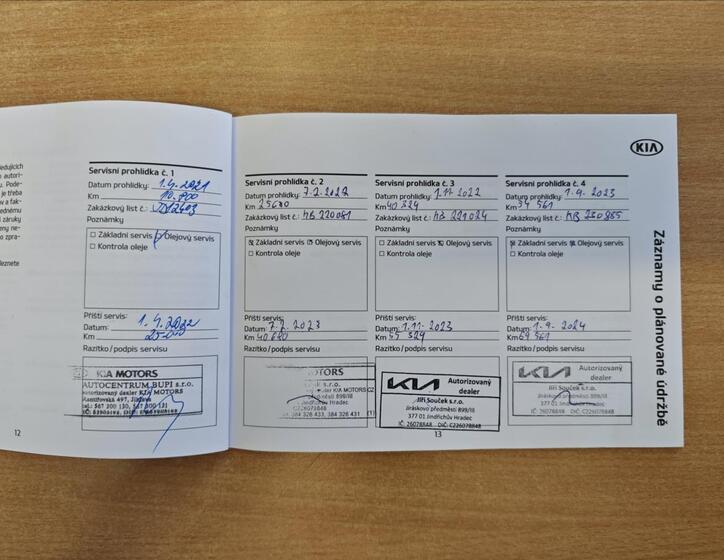 dujících
autori-
u. Pode-
je třeba
v a fak-
ednému
záruky
eny ne-
o zpra-
leznete
12
Servisní prohlídka č. 1
Datum prohlídky: 1.4.2021
Km 10.800
Zakázkový list č.:
Poznámky
Základní servis Olejový servis
Kontrola oleje
Příští servis:
Datum: 1.4.2022
Km
Razítko/podpis servisu
KIA MOTORS
AUTOCENTRUM BUPI s.r.o.
autorizovaný dealer KIA MOTORS
Servisní prohlídka č. 2
Datum prohlídky: 7.2.2022
Km 25680
Zakázkový list č.: hB 220081
Poznámky
Základní servis Olejový servis
Kontrola oleje
Příští servis:
Datum: 7.2.2023
Km 40680
Razítko/podpis servisu
TORS
s.r.o.
KIA MOTORS CZ
ěstí 899/III
Jindřichův Hradec
384 328 433, 384 328 431
Servisní prohlídka č. 3
Datum prohlídky: 1.11.2022
Km 40 324
Zakázkový list č.: hB 221024
Poznámky
Základní servis Olejový servis
Kontrola oleje
Příští servis:
Datum: 1.11.2023
Km
Razítko/podpis servisu
KIA Autorizovaný
dealer
Jiří Souček s.r.o.
Jiráskovo předměstí 899/III
377 01 Jindřichův Hradec
IČ: 26078848 DIČ: CZ26078848
13
Servisní prohlídka č. 4
Datum prohlídky: 1.9.2023
Km 54 561
Zakázkový list č.: hB 230985
Poznámky
Základní servis Olejový servis
Kontrola oleje
Příští servis:
Datum: 1.9.2024
Km 69 561
Razítko/podpis servisu
KIA Autorizovaný
dealer
Jiří Souček s.r.o.
Jiráskovo předměstí 899/III
377 01 Jindřichův Hradec
IČ: 26078848 DIČ: CZ26078848
KIA
Záznamy o plánované údržbě